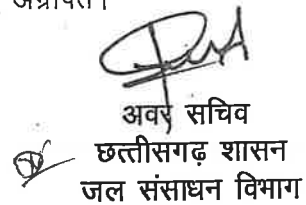 अवर सचिव
छत्तीसगढ़ शासन
जल संसाधन विभाग